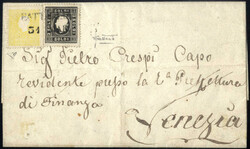 PATT
31
SOLDI
Sig.r Pietro Crespi Capo
revidente presso la I.a Prefettura
di Finanza
Venezia